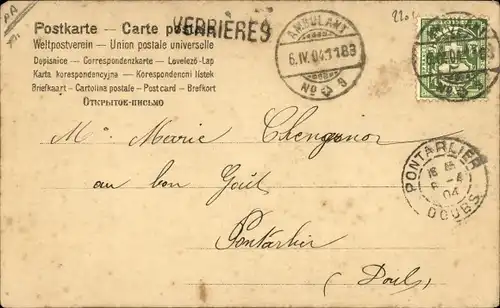 Postkarte – Carte postale
VERRIÈRES
Weltpostverein – Union postale universelle
Dopisnice – Correspondenzkarte – Lovelező-Lap
Karta korespondencyjna – Korespondenčni listek
Briefkaart – Cartolina postale – Post card – Brefkort
Открытое-письмо
AMBULANT
6.IV.04.11
No 9
PONTARLIER
04
DOUBS
Mlle Marie
au bon Goût
Pontarlier
(Doubs)